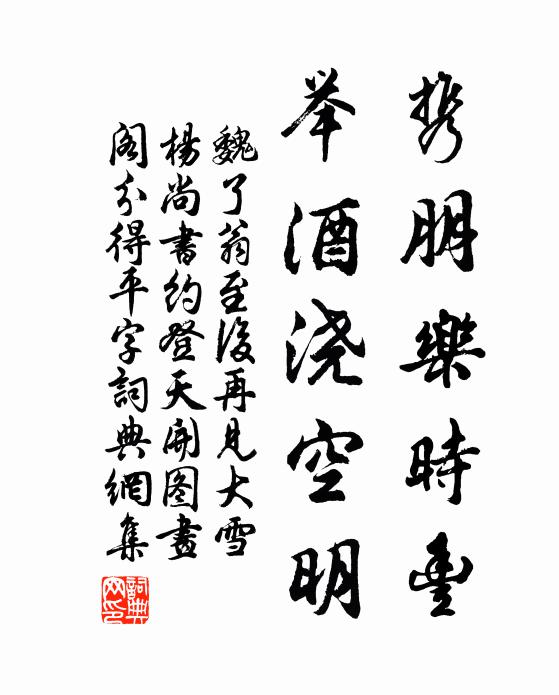 携朋樂時豊
举酒浇空明
魏了翁至後再見大雪
楊尚書約登天開图畫
阁分得平字詞典網集
詞典网印